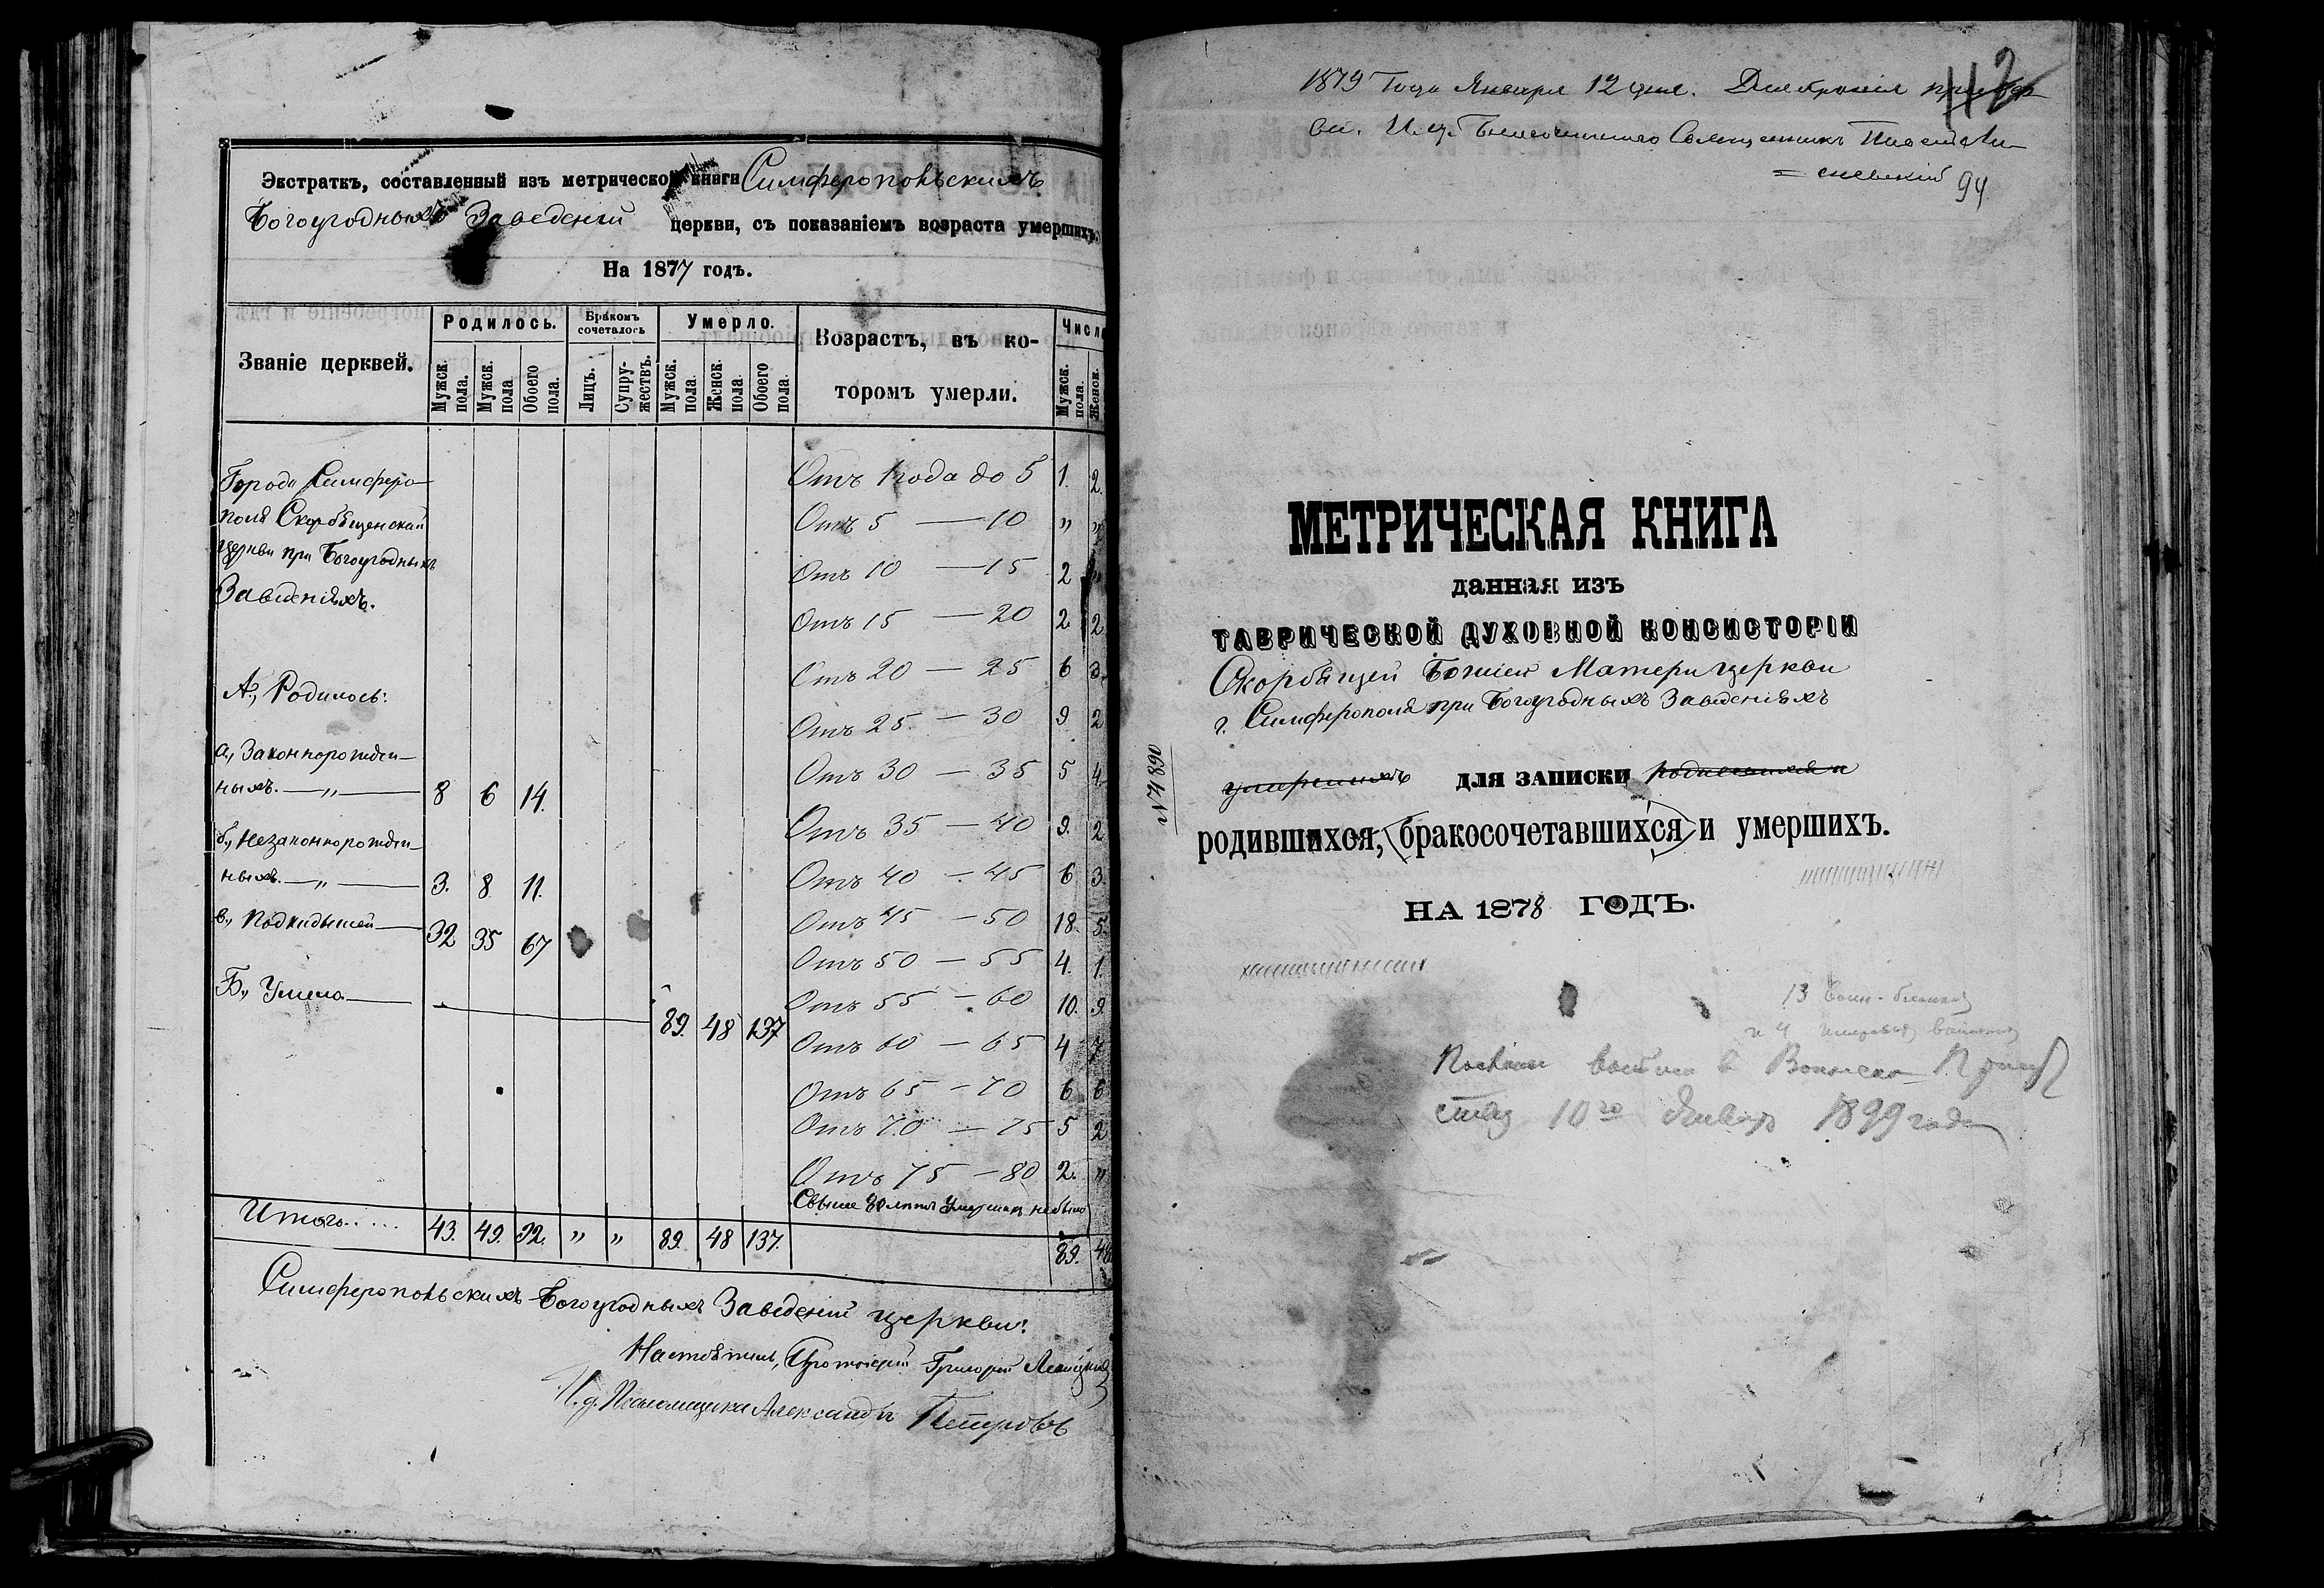 Экстрактъ, составленный изъ метрической книги Симферопольскихъ
Богоугодныхъ Заведеній церкви, съ показаніемъ возраста умершихъ.
На 1877 годъ.
Званіе церквей.
Родилось.
Бракомъ сочеталось
Умерло.
Возрастъ, въ которомъ умерли.
Число
Мужск. пола.
Мужск. пола
Обоего пола.
Лицъ.
Супружествъ.
Мужск. пола.
Женск. пола
Обоего пола.
Мужск. пола.
Женск.
Города Симферо-
поля Скорбященской
церкви при Богоугодныхъ
Заведеніяхъ.
А., Родилось:
а., Законнорожден-
ныхъ. — „ — 8 6 14.
б., Незаконнорожден-
ныхъ. — „ — 3. 8. 11.
в., Подкидышей — 32 35 67
Б., Умерло — 89. 48 137
Отъ 1 года до 5 1. 2.
Отъ 5 — 10 „ „
Отъ 10 — 15 2 „
Отъ 15 — 20 2 2
Отъ 20 — 25 6 3.
Отъ 25 — 30 9 2
Отъ 30 — 35 5 4
Отъ 35 — 40 9. 2
Отъ 40 — 45 6 3.
Отъ 45 — 50 18. 5.
Отъ 50 — 55 4. 1.
Отъ 55 — 60 10. 9.
Отъ 60 — 65 4 7
Отъ 65 — 70 6 6
Отъ 70 — 75 5 2
Отъ 75 — 80 2. „
Свыше 80 летъ Умершихъ небыло
Итого..... 43. 49. 92. „ „ 89. 48 137. 89. 48
Симферопольскихъ Богоугодныхъ Заведеній церкви:
Настоятель, Протоіерей Григорій
И. д. Псаломщика Александръ Петровъ
1879 Года Января 12 дня.
Священникъ
94
112
МЕТРИЧЕСКАЯ КНИГА
данная изъ
ТАВРИЧЕСКОЙ ДУХОВНОЙ КОНСИСТОРІИ
Скорбящей Божіей Матери церкви
г. Симферополя при Богоугодныхъ Заведеніяхъ
№ 4890
умершихъ для записки родившихся и
родившихся, (бракосочетавшихся) и умершихъ.
НА 1878 ГОДЪ.
13
10го Январ 1899 года